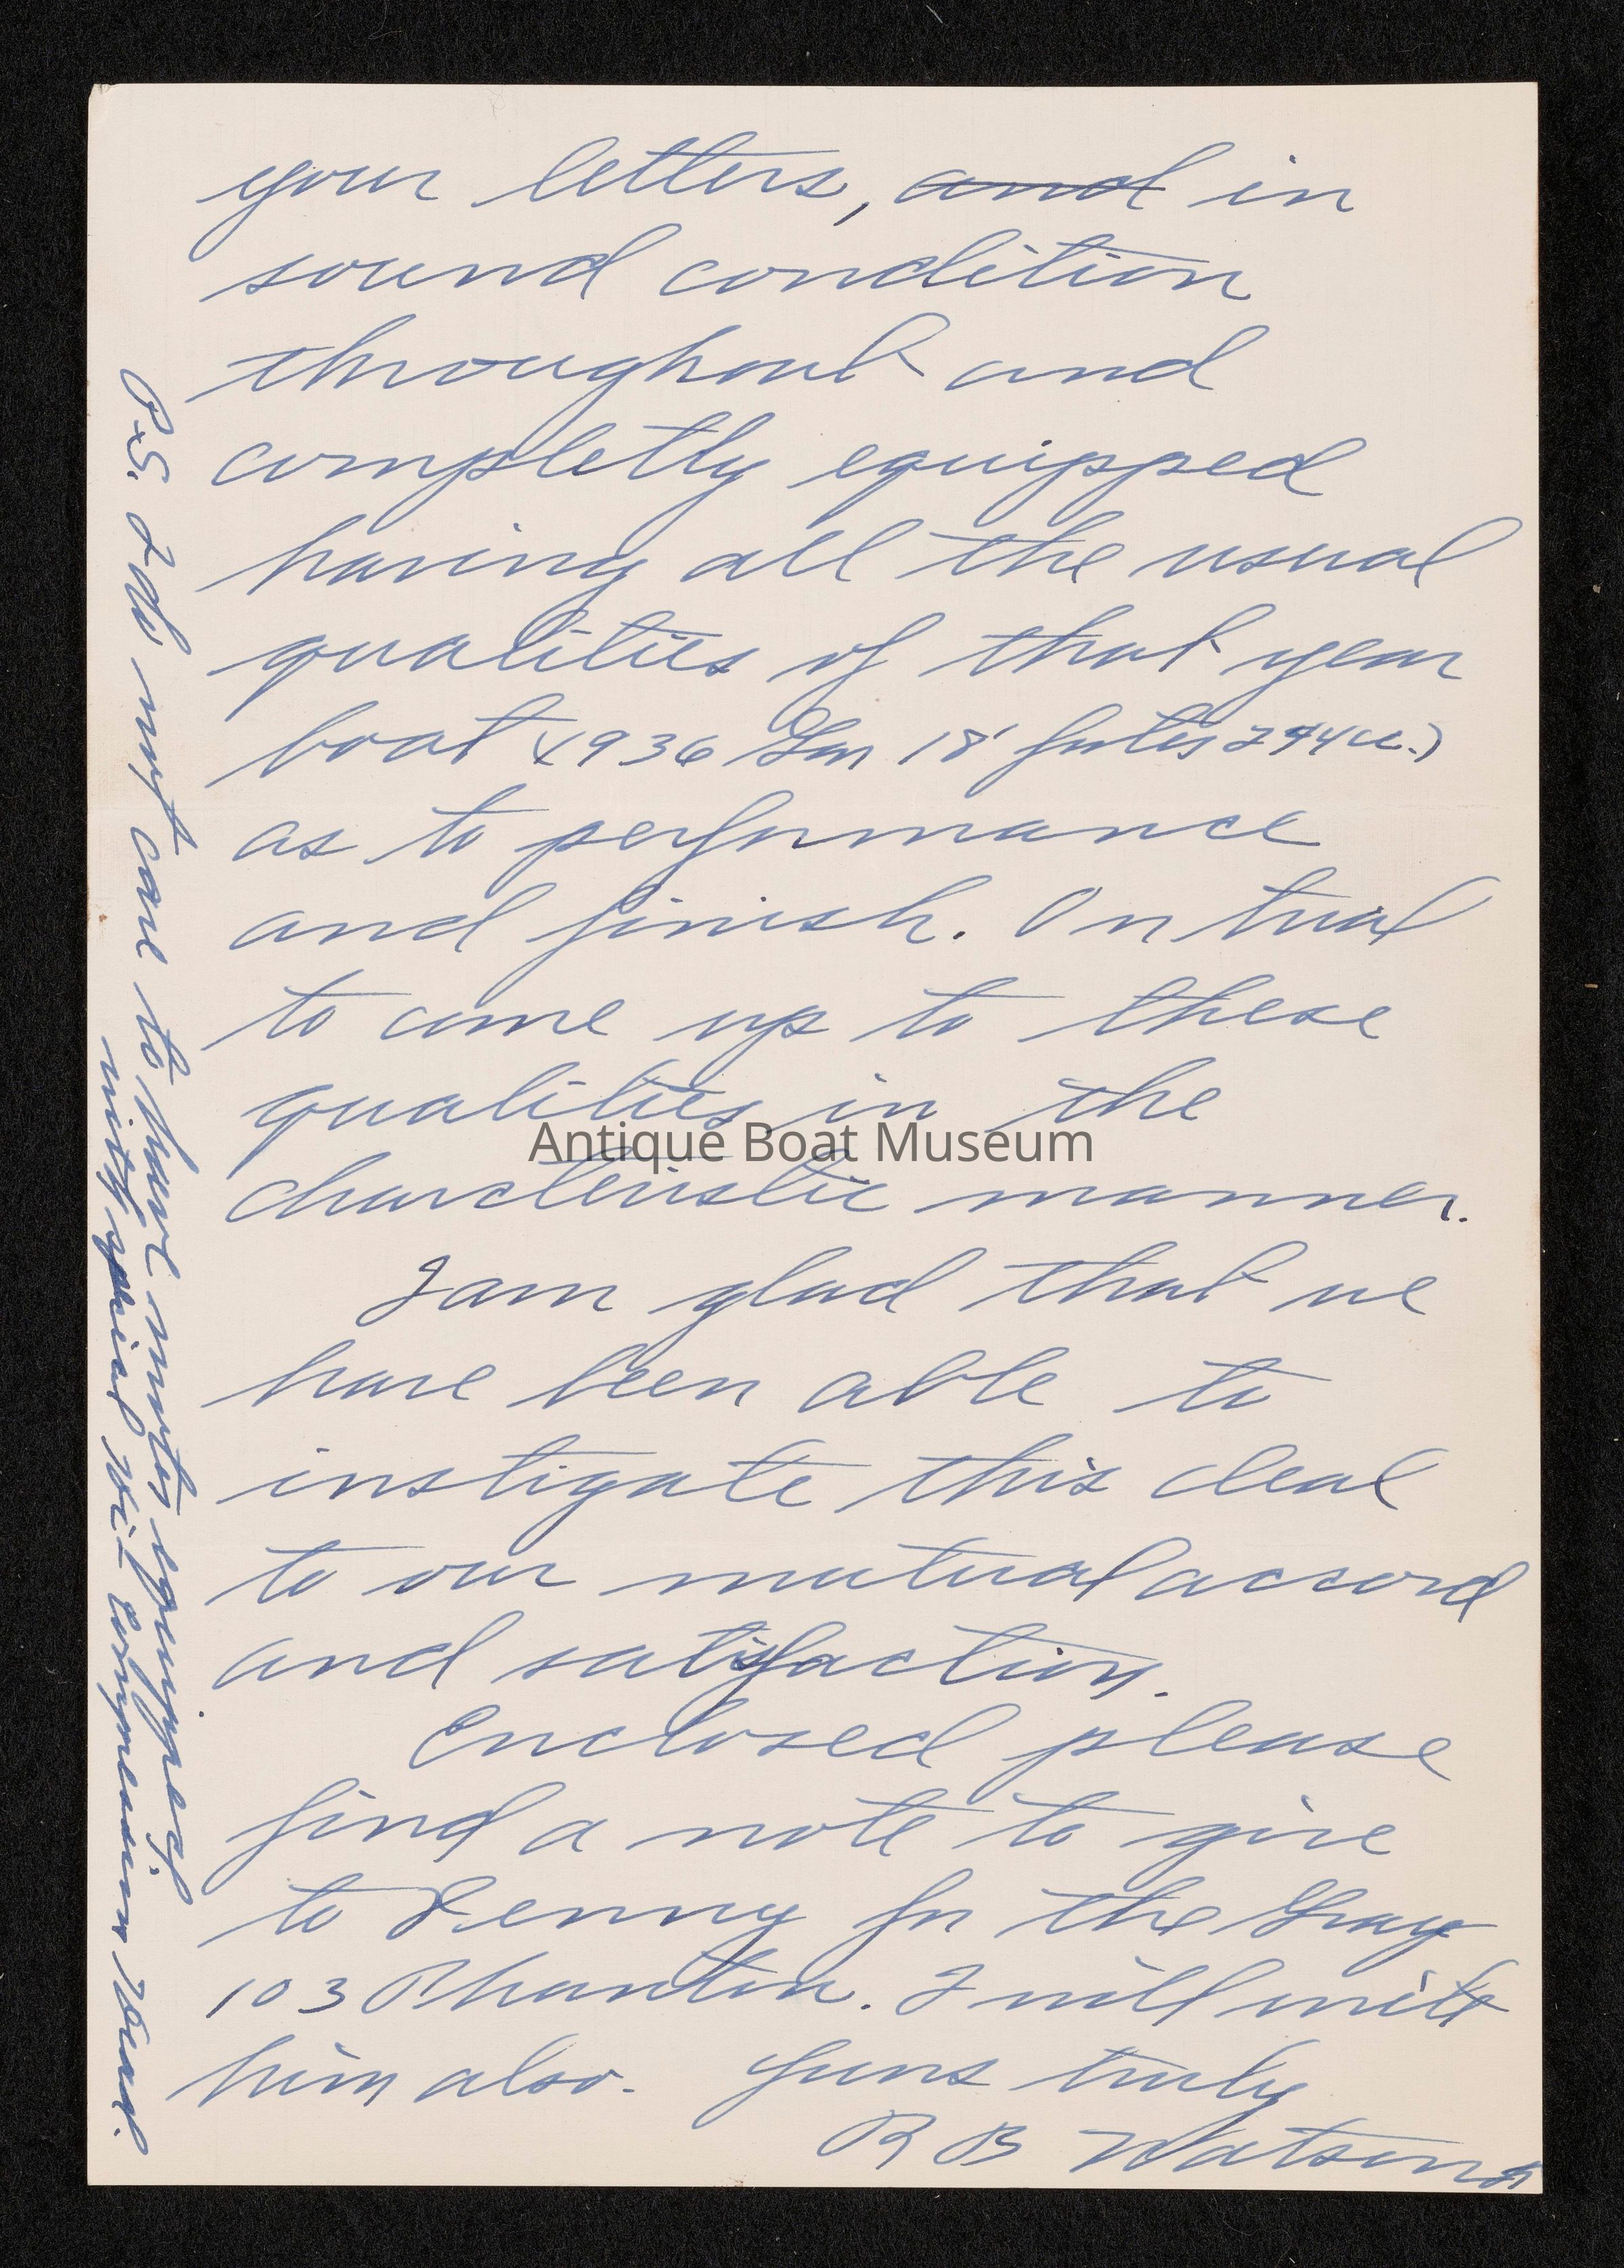 your letters, and in
sound condition
throughout and
completly equipped
having all the usual
qualities of that year
boat (1936 Gar 18' 
as to performance
and finish. On trial
to come up to these
qualities in the
charcteristic manner.
I am glad that we
have been able to
instigate this deal
to our mutual accord
and satisfaction.
Enclosed please
find a note to give
to Lenny for the Gray
103 Phantom. I will write
him also. Yours truly
R B Watson
P.S. I do not care to have motor equipped
with special Hi-compression Head.
Antique Boat Museum